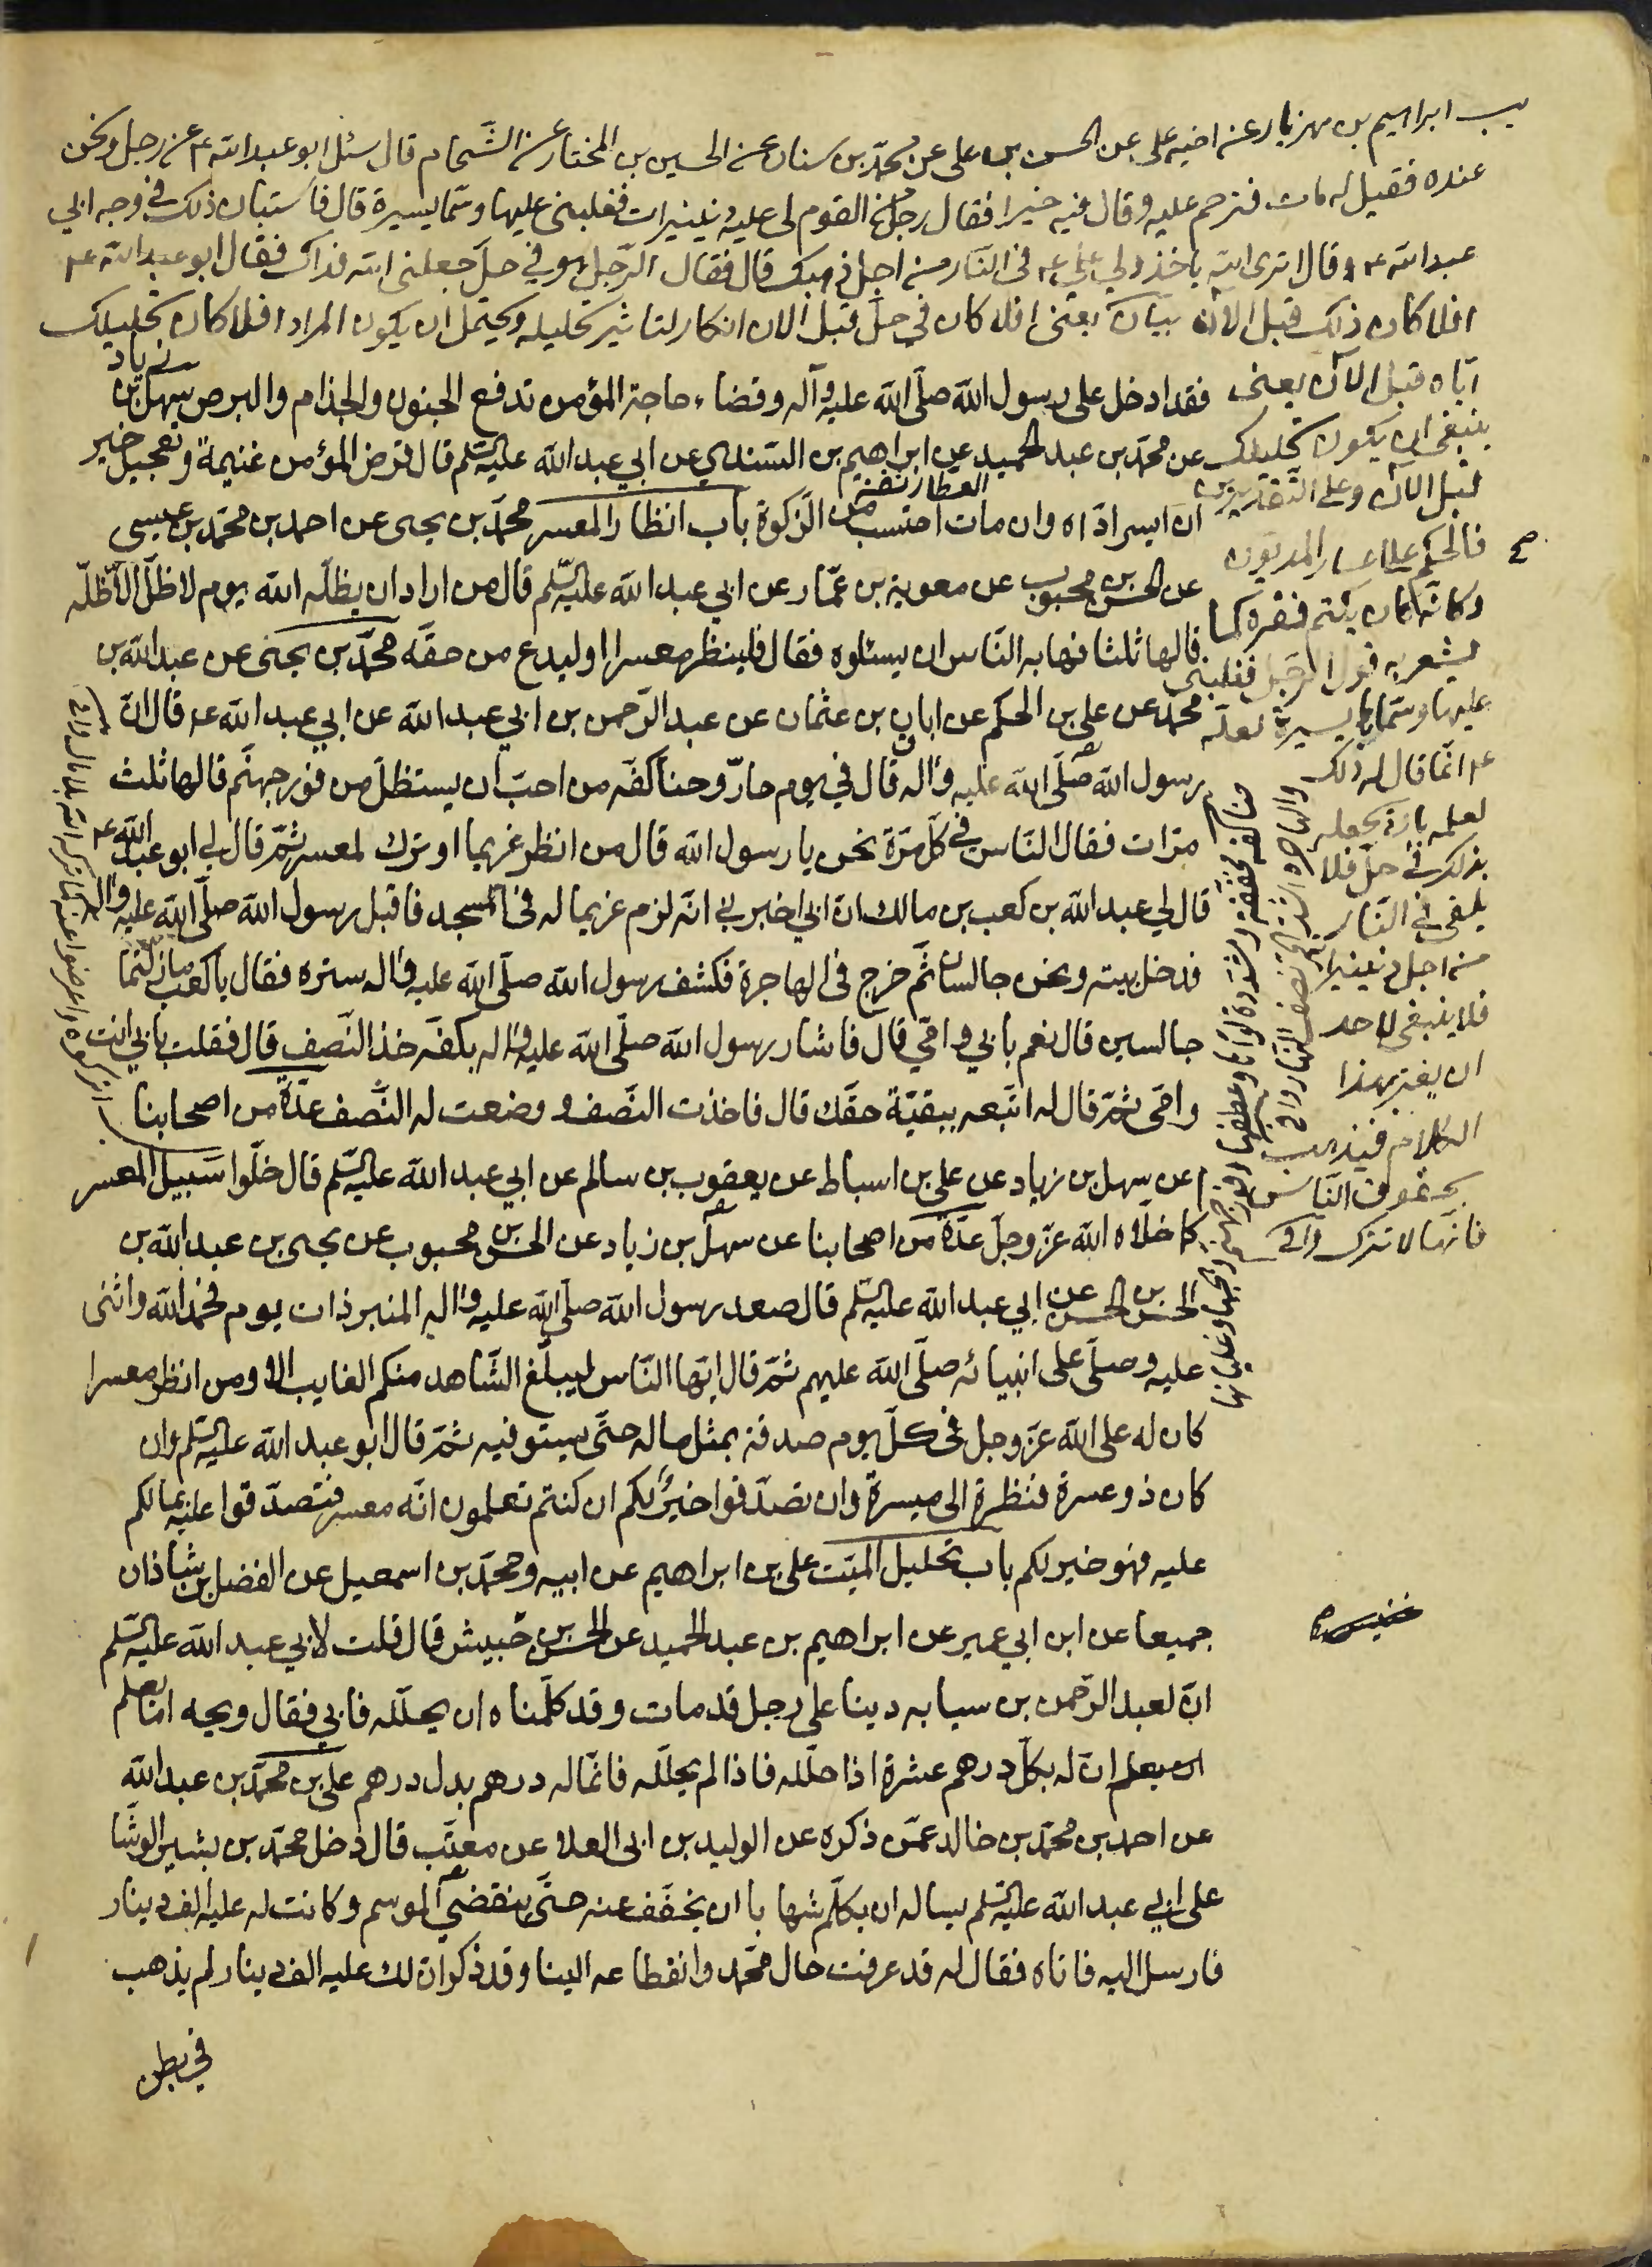 يب ابراهيم بن مهزيار عن اخيه علي عن الحسن بن علي عن محمد بن سنان عن الحسين بن المختار عن الشحام قال سئل ابو عبدالله ع عن رجل ونحن
عنده فقيل له مات فترحم عليه وقال فيه خيرا فقال رجل من القوم لي عليه دنينيرات فغلبني عليها وسماها يسيرة قال فاستبان ذلك في وجه ابي
عبدالله ع وقال اترى الله ياخذ ولي علي ع في النار من اجل ذهبك قال فقال الرجل هو في حل جعلني الله فداك فقال ابو عبدالله ع
افلا كان ذلك قبل الان بيان يعني افلا كان في حل قبل الان انكار لتاثير تحليله ويحتمل ان يكون المراد افلا كان تحليلك
اياه قبل الآن يعني
ينبغي ان يكون تحليلك
قبل الآن وعلى التقديرين
فالحكم على اعسار المديون
وكانه كان يكتم فقره كما
يشعر به قول الرجل فغلبني
عليها وسماها يسيرة لعله
ع انما قال له ذلك
لعلمه بانه يجعله
بذلك في حل فلا
يلقى في النار
من اجل دنينيراته
فلا ينبغي لاحد
ان يغتر بهذا
الكلام فيذهب
بحقوق الناس
فانها لا تترك
فقد ادخل على رسول الله صلى الله عليه وآله وقضاء حاجة المؤمن تدفع الجنون والجذام والبرص سهل بن زياد
عن محمد بن عبد الحميد عن ابراهيم بن السندي عن ابي عبد الله عليه السلم قال قرض المؤمن غنيمة وتعجيل خير
ان ايسر اداه وان مات احتسب من الزكوة باب انظار المعسر محمد بن يحيى العطار ثقة عن احمد بن محمد بن عيسى
عن الحسن بن محبوب عن معوية بن عمار عن ابي عبد الله عليه السلم قال من اراد ان يظله الله يوم لا ظل الا ظله
قالها ثلثا فهابه الناس ان يسئلوه فقال فلينظر معسرا او ليدع من حقه محمد بن يحيى عن عبد الله بن
محمد عن علي بن الحكم عن ابان بن عثمان عن عبد الرحمن بن ابي عبد الله عن ابي عبد الله ع قال ان
رسول الله صلى الله عليه واله قال في يوم حار وحنا كفه من احب ان يستظل من فور جهنم قالها ثلث
مرات فقال الناس في كل مرة نحن يا رسول الله قال من انظر غريما او ترك لمعسر ثم قال لي ابو عبد الله ع
قال لي عبد الله بن كعب بن مالك ان ابي اخبرني انه لزم غريما له في المسجد فاقبل رسول الله صلى الله عليه واله
فدخل بيته ونحن جالسان ثم خرج في الهاجرة فكشف رسول الله صلى الله عليه واله ستره فقال يا كعب ما زلتما
جالسين قال نعم بابي وامي قال فاشار رسول الله صلى الله عليه واله بكفه خذ النصف قال فقلت بابي انت
وامي ثم قال له اتبعه ببقية حقك قال فاخذت النصف ووضعت له النصف عدة من اصحابنا
عن سهل بن زياد عن علي بن اسباط عن يعقوب بن سالم عن ابي عبد الله عليه السلم قال خلوا سبيل المعسر
كما خلاه الله عز وجل عدة من اصحابنا عن سهل بن زياد عن الحسن بن محبوب عن يحيى بن عبد الله بن
الحسن بن الحسن عن ابي عبد الله عليه السلم قال صعد رسول الله صلى الله عليه واله المنبر ذات يوم فحمد الله واثنى
عليه وصلى على انبيائه صلى الله عليهم ثم قال ايها الناس ليبلغ الشاهد منكم الغايب الا ومن انظر معسرا
كان له على الله عز وجل في كل يوم صدقة بمثل ماله حتى يستوفيه ثم قال ابو عبد الله عليه السلم وان
كان ذو عسرة فنظرة الى ميسرة وان تصدقوا خير لكم ان كنتم تعلمون انه معسر فتصدقوا عليه بمالكم
عليه فهو خير لكم باب تحليل الميت علي بن ابراهيم عن ابيه ومحمد بن اسمعيل عن الفضل بن شاذان
جميعا عن ابن ابي عمير عن ابراهيم بن عبد الحميد عن الحسن بن خنيس قال قلت لابي عبد الله عليه السلم
ان لعبد الرحمن بن سيابه دينا على رجل قد مات وقد كلمناه ان يحلله فابى فقال ويحه اما يعلم
ان له بكل درهم عشرة اذا حلله فاذا لم يحلله فانما له درهم بدل درهم علي بن محمد بن عبد الله
عن احمد بن محمد بن خالد عمن ذكره عن الوليد بن ابي العلا عن معتب قال دخل محمد بن بشير الوشا
على ابي عبد الله عليه السلم يساله ان يكلم شهابا ان يخفف عنه حتى ينقضي الموسم وكانت له عليه الف دينار
فارسل اليه فاتاه فقال له قد عرفت حال محمد وانقطاعه الينا وقد ذكر ان لك عليه الف دينار لم يذهب
في بطن